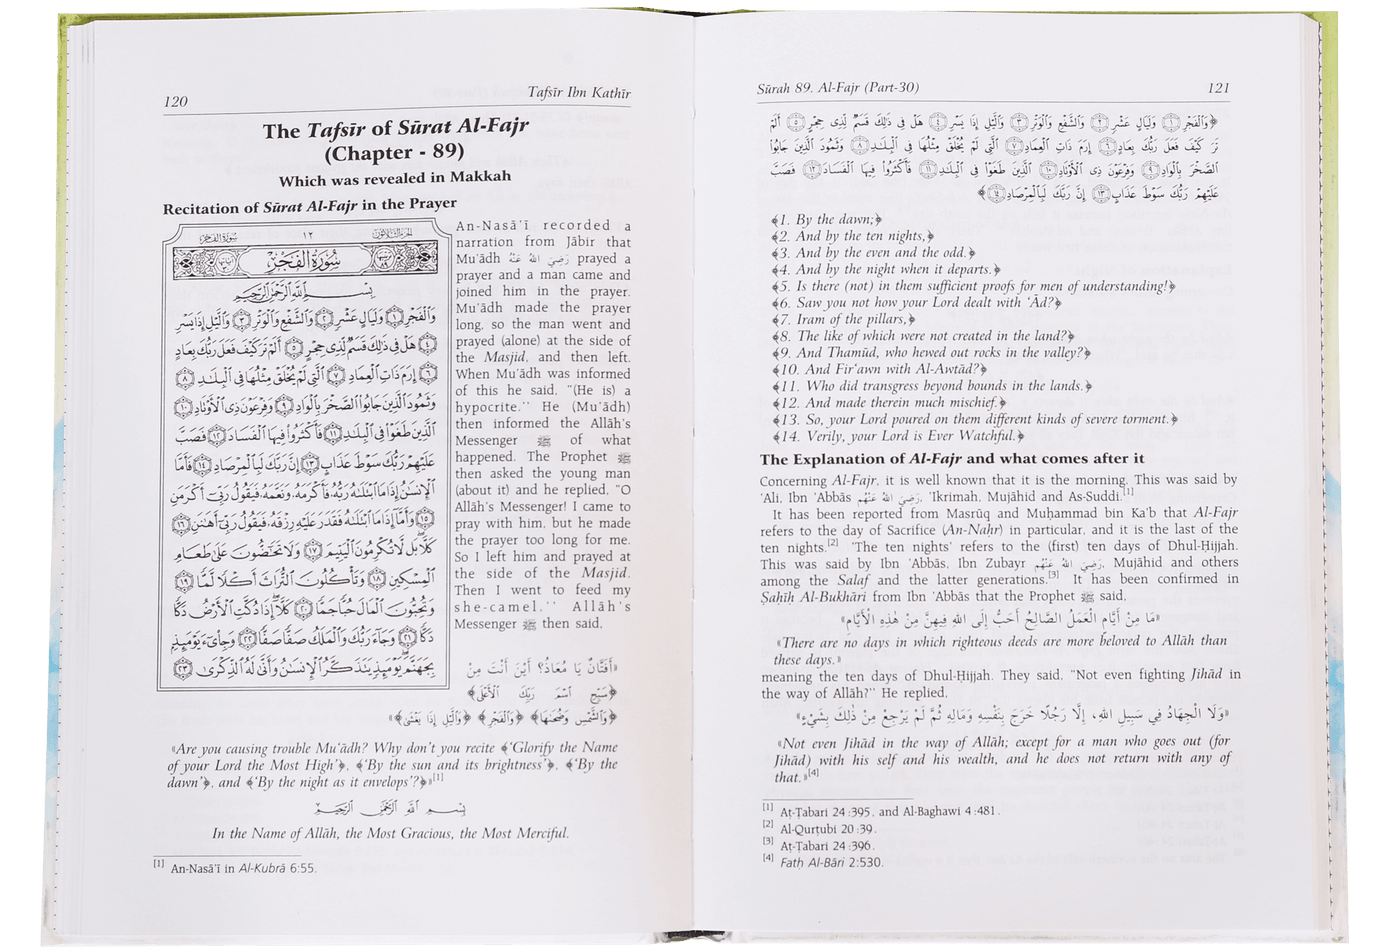 120
Tafsīr Ibn Kathīr
The Tafsīr of Sūrat Al-Fajr
(Chapter - 89)
Which was revealed in Makkah
Recitation of Sūrat Al-Fajr in the Prayer
سُورَةُ الفَجْرِ ١٢ الجزء الثلاثون
سُورَةُ الفَجْرِ
بِسْمِ اللَّهِ الرَّحْمَٰنِ الرَّحِيمِ
وَالْفَجْرِ ١ وَلَيَالٍ عَشْرٍ ٢ وَالشَّفْعِ وَالْوَتْرِ ٣ وَاللَّيْلِ إِذَا يَسْرِ
٤ هَلْ فِي ذَٰلِكَ قَسَمٌ لِّذِي حِجْرٍ ٥ أَلَمْ تَرَ كَيْفَ فَعَلَ رَبُّكَ بِعَادٍ
٦ إِرَمَ ذَاتِ الْعِمَادِ ٧ الَّتِي لَمْ يُخْلَقْ مِثْلُهَا فِي الْبِلَادِ ٨
وَثَمُودَ الَّذِينَ جَابُوا الصَّخْرَ بِالْوَادِ ٩ وَفِرْعَوْنَ ذِي الْأَوْتَادِ ١٠
الَّذِينَ طَغَوْا فِي الْبِلَادِ ١١ فَأَكْثَرُوا فِيهَا الْفَسَادَ ١٢ فَصَبَّ
عَلَيْهِمْ رَبُّكَ سَوْطَ عَذَابٍ ١٣ إِنَّ رَبَّكَ لَبِالْمِرْصَادِ ١٤ فَأَمَّا
الْإِنسَانُ إِذَا مَا ابْتَلَاهُ رَبُّهُ فَأَكْرَمَهُ وَنَعَّمَهُ فَيَقُولُ رَبِّي أَكْرَمَنِ
١٥ وَأَمَّا إِذَا مَا ابْتَلَاهُ فَقَدَرَ عَلَيْهِ رِزْقَهُ فَيَقُولُ رَبِّي أَهَانَنِ ١٦
كَلَّا بَل لَّا تُكْرِمُونَ الْيَتِيمَ ١٧ وَلَا تَحَاضُّونَ عَلَىٰ طَعَامِ
الْمِسْكِينِ ١٨ وَتَأْكُلُونَ التُّرَاثَ أَكْلًا لَّمًّا ١٩
وَتُحِبُّونَ الْمَالَ حُبًّا جَمًّا ٢٠ كَلَّا إِذَا دُكَّتِ الْأَرْضُ دَكًّا
دَكًّا ٢١ وَجَاءَ رَبُّكَ وَالْمَلَكُ صَفًّا صَفًّا ٢٢ وَجِيءَ يَوْمَئِذٍ
بِجَهَنَّمَ يَوْمَئِذٍ يَتَذَكَّرُ الْإِنسَانُ وَأَنَّىٰ لَهُ الذِّكْرَىٰ ٢٣
An-Nasā'ī recorded a
narration from Jābir that
Mu'ādh رَضِيَ اللهُ عَنْهُ prayed a
prayer and a man came and
joined him in the prayer.
Mu'ādh made the prayer
long, so the man went and
prayed (alone) at the side of
the Masjid, and then left.
When Mu'ādh was informed
of this he said, "(He is) a
hypocrite." He (Mu'ādh)
then informed the Allāh's
Messenger ﷺ of what
happened. The Prophet ﷺ
then asked the young man
(about it) and he replied, "O
Allāh's Messenger! I came to
pray with him, but he made
the prayer too long for me.
So I left him and prayed at
the side of the Masjid.
Then I went to feed my
she-camel." Allāh's
Messenger ﷺ then said,
«أَفَتَّانٌ يَا مُعَاذُ؟ أَيْنَ أَنْتَ مِنْ
﴿سَبِّحِ اسْمَ رَبِّكَ الْأَعْلَى﴾
﴿وَالشَّمْسِ وَضُحَاهَا﴾ ﴿وَالْفَجْرِ﴾ ﴿وَاللَّيْلِ إِذَا يَغْشَى﴾»
«Are you causing trouble Mu'ādh? Why don't you recite ﴾'Glorify the Name
of your Lord the Most High'﴿, ﴾'By the sun and its brightness'﴿, ﴾'By the
dawn'﴿, and ﴾'By the night as it envelops'?﴿»[1]
بِسْمِ اللَّهِ الرَّحْمَٰنِ الرَّحِيمِ
In the Name of Allāh, the Most Gracious, the Most Merciful.
[1] An-Nasā'ī in Al-Kubrā 6:55.
Sūrah 89. Al-Fajr (Part-30)
121
﴿وَالْفَجْرِ ١ وَلَيَالٍ عَشْرٍ ٢ وَالشَّفْعِ وَالْوَتْرِ ٣ وَاللَّيْلِ إِذَا يَسْرِ ٤ هَلْ فِي ذَٰلِكَ قَسَمٌ لِّذِي حِجْرٍ ٥ أَلَمْ
تَرَ كَيْفَ فَعَلَ رَبُّكَ بِعَادٍ ٦ إِرَمَ ذَاتِ الْعِمَادِ ٧ الَّتِي لَمْ يُخْلَقْ مِثْلُهَا فِي الْبِلَادِ ٨ وَثَمُودَ الَّذِينَ جَابُوا
الصَّخْرَ بِالْوَادِ ٩ وَفِرْعَوْنَ ذِي الْأَوْتَادِ ١٠ الَّذِينَ طَغَوْا فِي الْبِلَادِ ١١ فَأَكْثَرُوا فِيهَا الْفَسَادَ ١٢ فَصَبَّ
عَلَيْهِمْ رَبُّكَ سَوْطَ عَذَابٍ ١٣ إِنَّ رَبَّكَ لَبِالْمِرْصَادِ ١٤﴾
﴾1. By the dawn;﴿
﴾2. And by the ten nights,﴿
﴾3. And by the even and the odd.﴿
﴾4. And by the night when it departs.﴿
﴾5. Is there (not) in them sufficient proofs for men of understanding!﴿
﴾6. Saw you not how your Lord dealt with 'Ād?﴿
﴾7. Iram of the pillars,﴿
﴾8. The like of which were not created in the land?﴿
﴾9. And Thamūd, who hewed out rocks in the valley?﴿
﴾10. And Fir'awn with Al-Awtād?﴿
﴾11. Who did transgress beyond bounds in the lands.﴿
﴾12. And made therein much mischief.﴿
﴾13. So, your Lord poured on them different kinds of severe torment.﴿
﴾14. Verily, your Lord is Ever Watchful.﴿
The Explanation of Al-Fajr and what comes after it
Concerning Al-Fajr, it is well known that it is the morning. This was said by
'Ali, Ibn 'Abbās رَضِيَ اللهُ عَنْهُم, 'Ikrimah, Mujāhid and As-Suddi.[1]
It has been reported from Masrūq and Muḥammad bin Ka'b that Al-Fajr
refers to the day of Sacrifice (An-Naḥr) in particular, and it is the last of the
ten nights.[2] 'The ten nights' refers to the (first) ten days of Dhul-Ḥijjah.
This was said by Ibn 'Abbās, Ibn Zubayr رَضِيَ اللهُ عَنْهُم, Mujāhid and others
among the Salaf and the latter generations.[3] It has been confirmed in
Ṣaḥīḥ Al-Bukhāri from Ibn 'Abbās that the Prophet ﷺ said,
«مَا مِنْ أَيَّامٍ الْعَمَلُ الصَّالِحُ أَحَبُّ إِلَى اللهِ فِيهِنَّ مِنْ هٰذِهِ الْأَيَّامِ»
«There are no days in which righteous deeds are more beloved to Allāh than
these days.»
meaning the ten days of Dhul-Ḥijjah. They said, "Not even fighting Jihād in
the way of Allāh?" He replied,
«وَلَا الْجِهَادُ فِي سَبِيلِ اللهِ، إِلَّا رَجُلًا خَرَجَ بِنَفْسِهِ وَمَالِهِ ثُمَّ لَمْ يَرْجِعْ مِنْ ذٰلِكَ بِشَيْءٍ»
«Not even Jihād in the way of Allāh; except for a man who goes out (for
Jihād) with his self and his wealth, and he does not return with any of
that.»[4]
[1] Aṭ-Ṭabari 24:395, and Al-Baghawi 4:481.
[2] Al-Qurṭubi 20:39.
[3] Aṭ-Ṭabari 24:396.
[4] Fatḥ Al-Bāri 2:530.